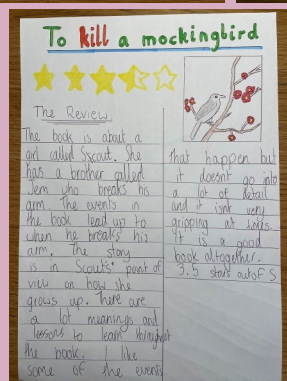 To kill a mockingbird
The Review
The book is about a
girl called Sscout. She
has a brother called
Jem who breaks his
arm. The events in
the book lead up to
when he breaks his
arm. The story
is in Scouts' point of
view on how she
grows up. There are
a lot meanings and
lessons to learn throughout
the book. I like
some of the events
that happen but
it doesnt go into
a lot of detail
and it isnt very
gripping at times.
It is a good
book altogether.
3.5 stars out of 5